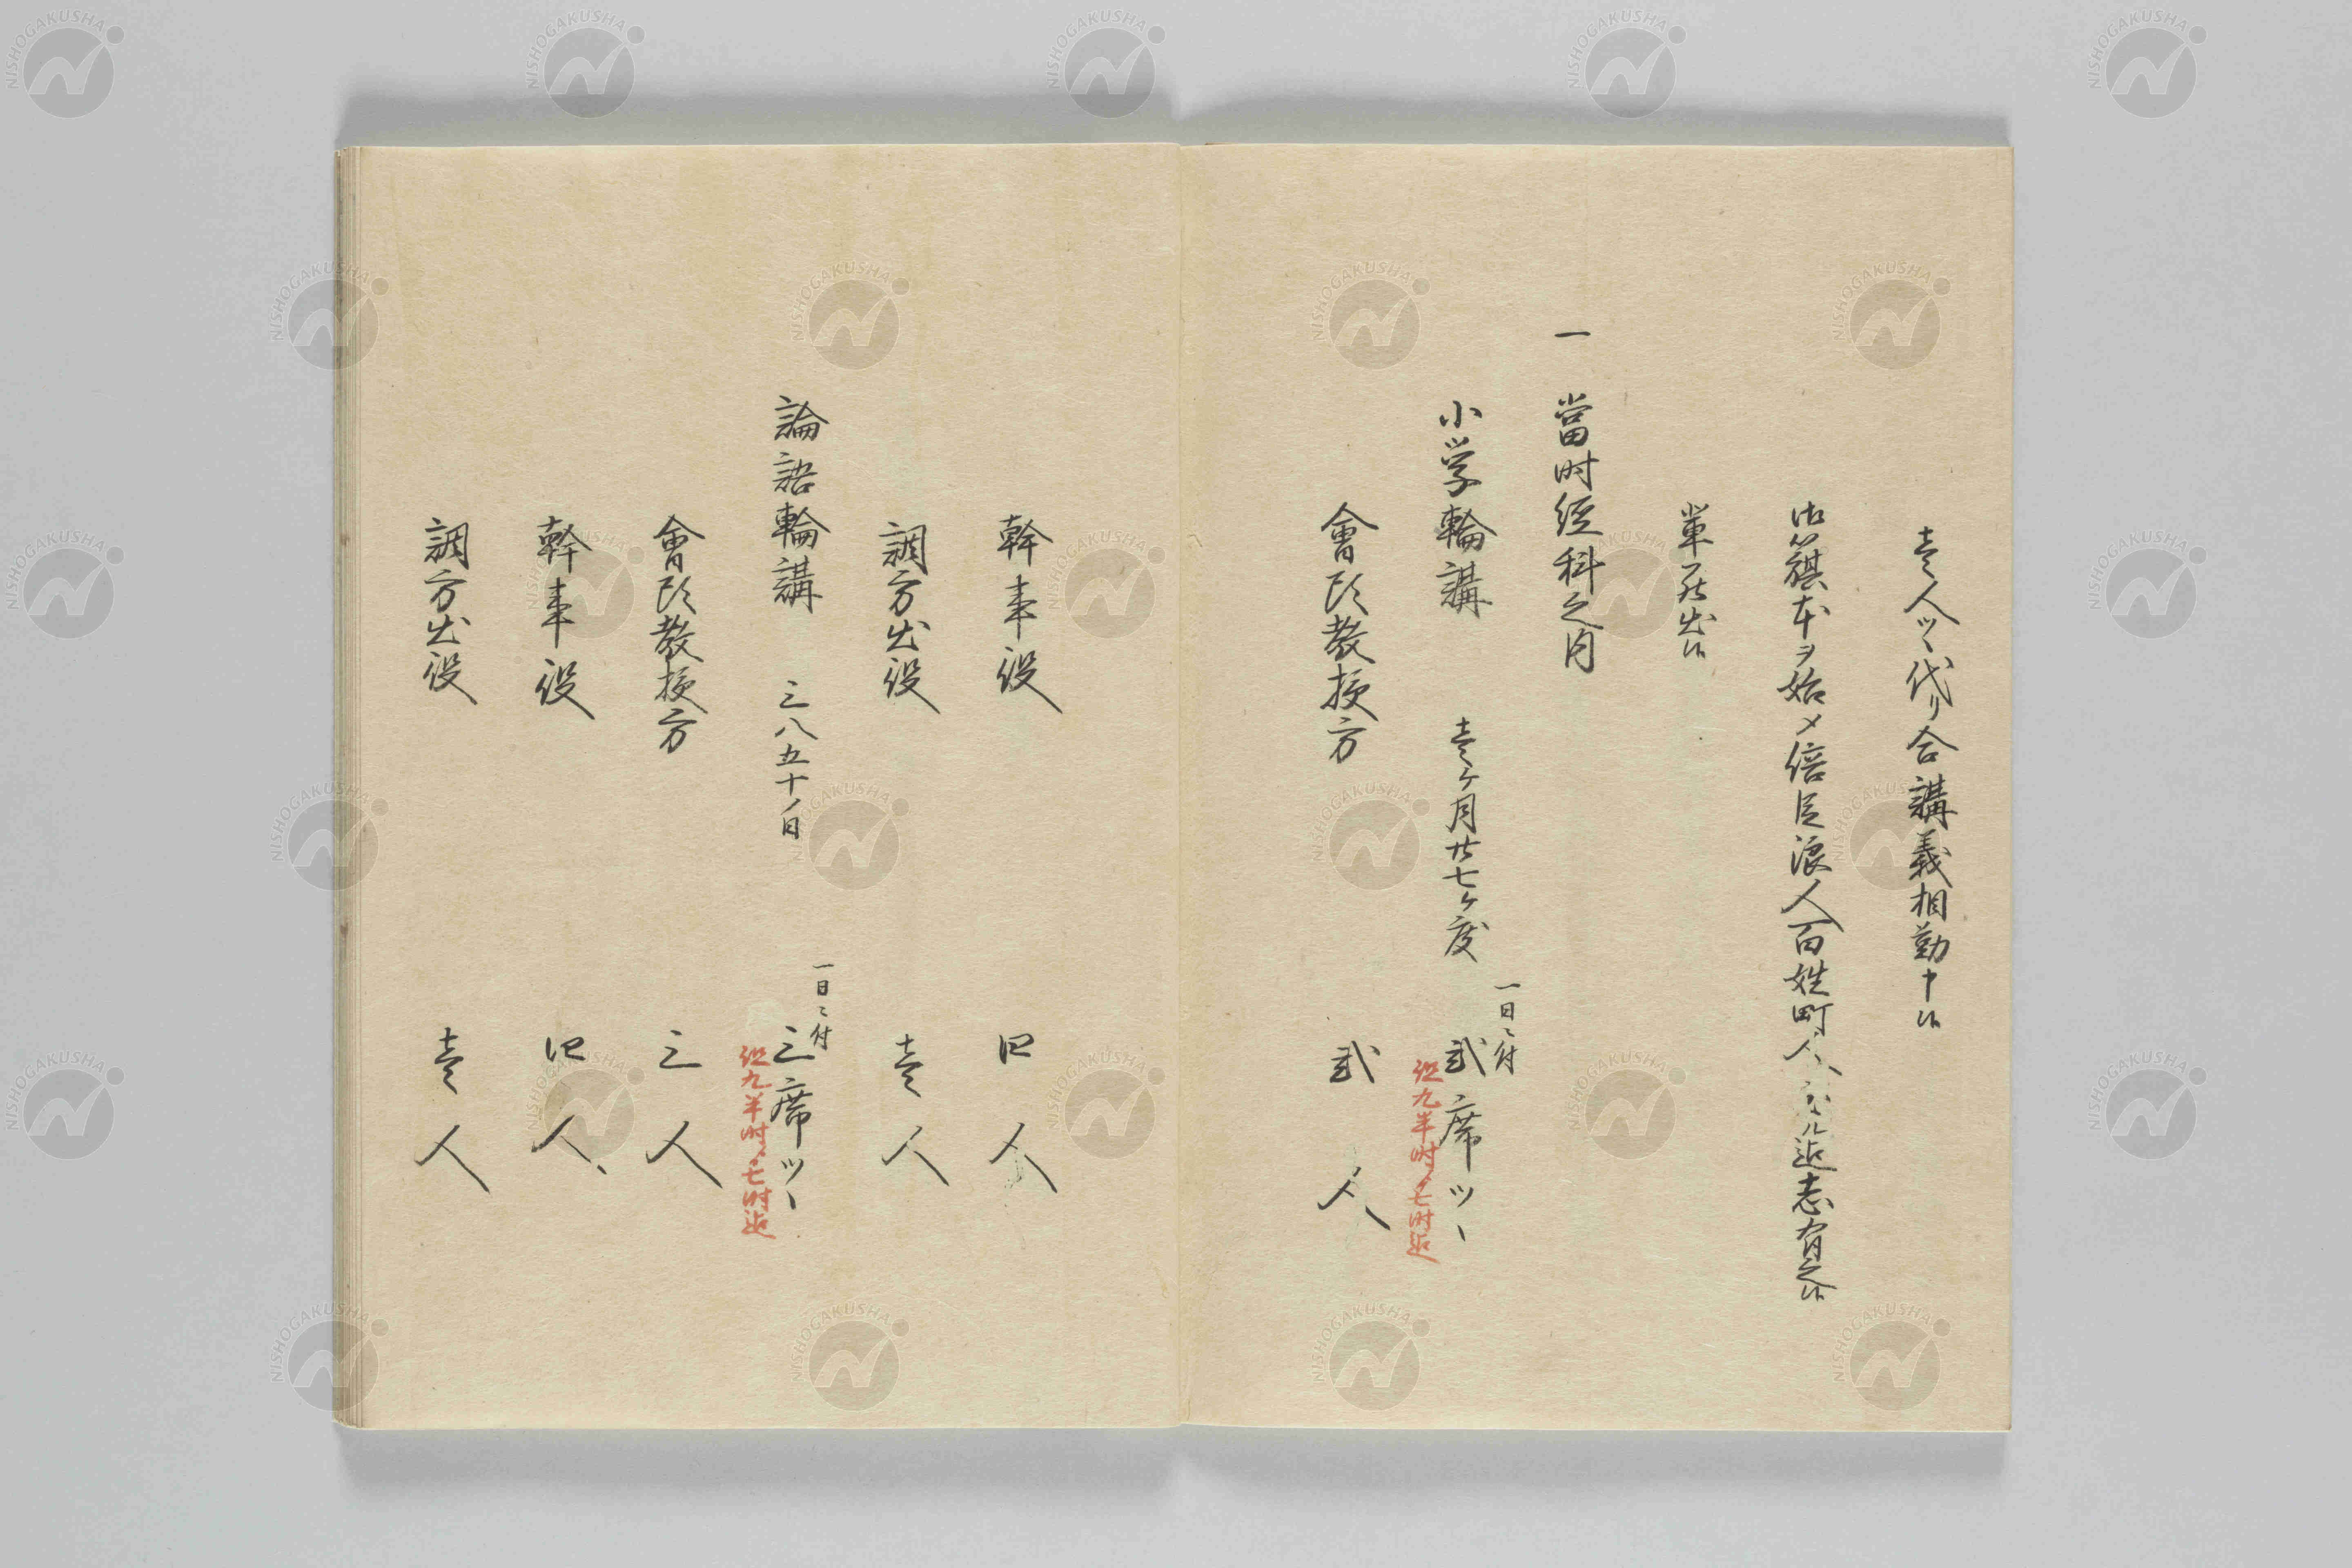 壱人ツヽ代リ合講義相勤申候
御籏本ヲ始メ倍臣浪人百姓町人ニ迄志有之候
輩罷出候
一 當时経科之内
小学輪講 壱ヶ月廿七ヶ度 一日ニ付 弐席ツヽ
従九半时七时迄
會頭教授方 弐人
幹事役 四人
調方出役 壱人
論語輪講 三八五十ノ日 一日ニ付 三席ツヽ
従九半时七时迄
會頭教授方 三人
幹事役 四人
調方出役 壱人
NISHOGAKUSHA